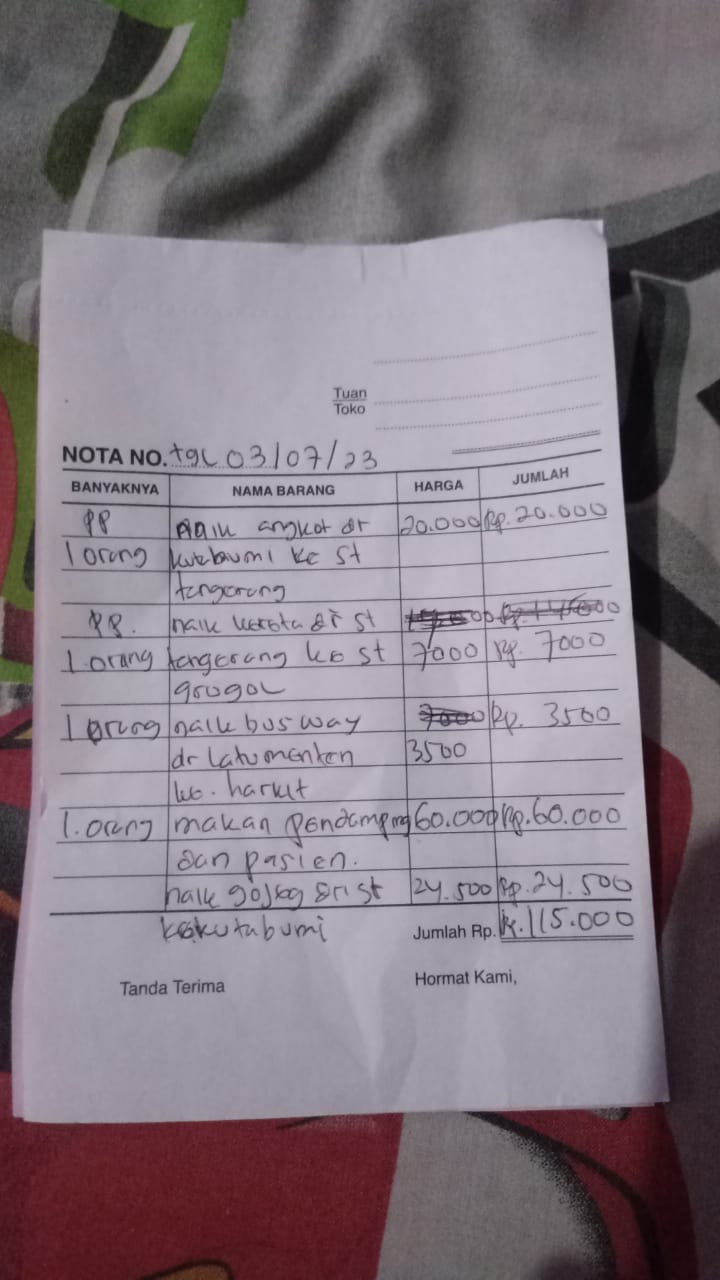 Tuan
Toko
NOTA NO. tgl 03/07/23
BANYAKNYA NAMA BARANG HARGA JUMLAH
PP naik angkot dr 20.000 Rp. 20.000
1 orang kutabumi ke st
tangerang
PP. naik kereta dr st
1 orang tangerang ke st 7000 Rp. 7000
grogol
1 orang naik bus way 7000 Rp. 3500
dr latumenten 3500
ke. harkit
1. orang makan pendamping 60.000 Rp. 60.000
dan pasien.
naik gojeg dri st 24.500 Rp. 24.500
ke kutabumi Jumlah Rp. Rp. 115.000
Tanda Terima Hormat Kami,